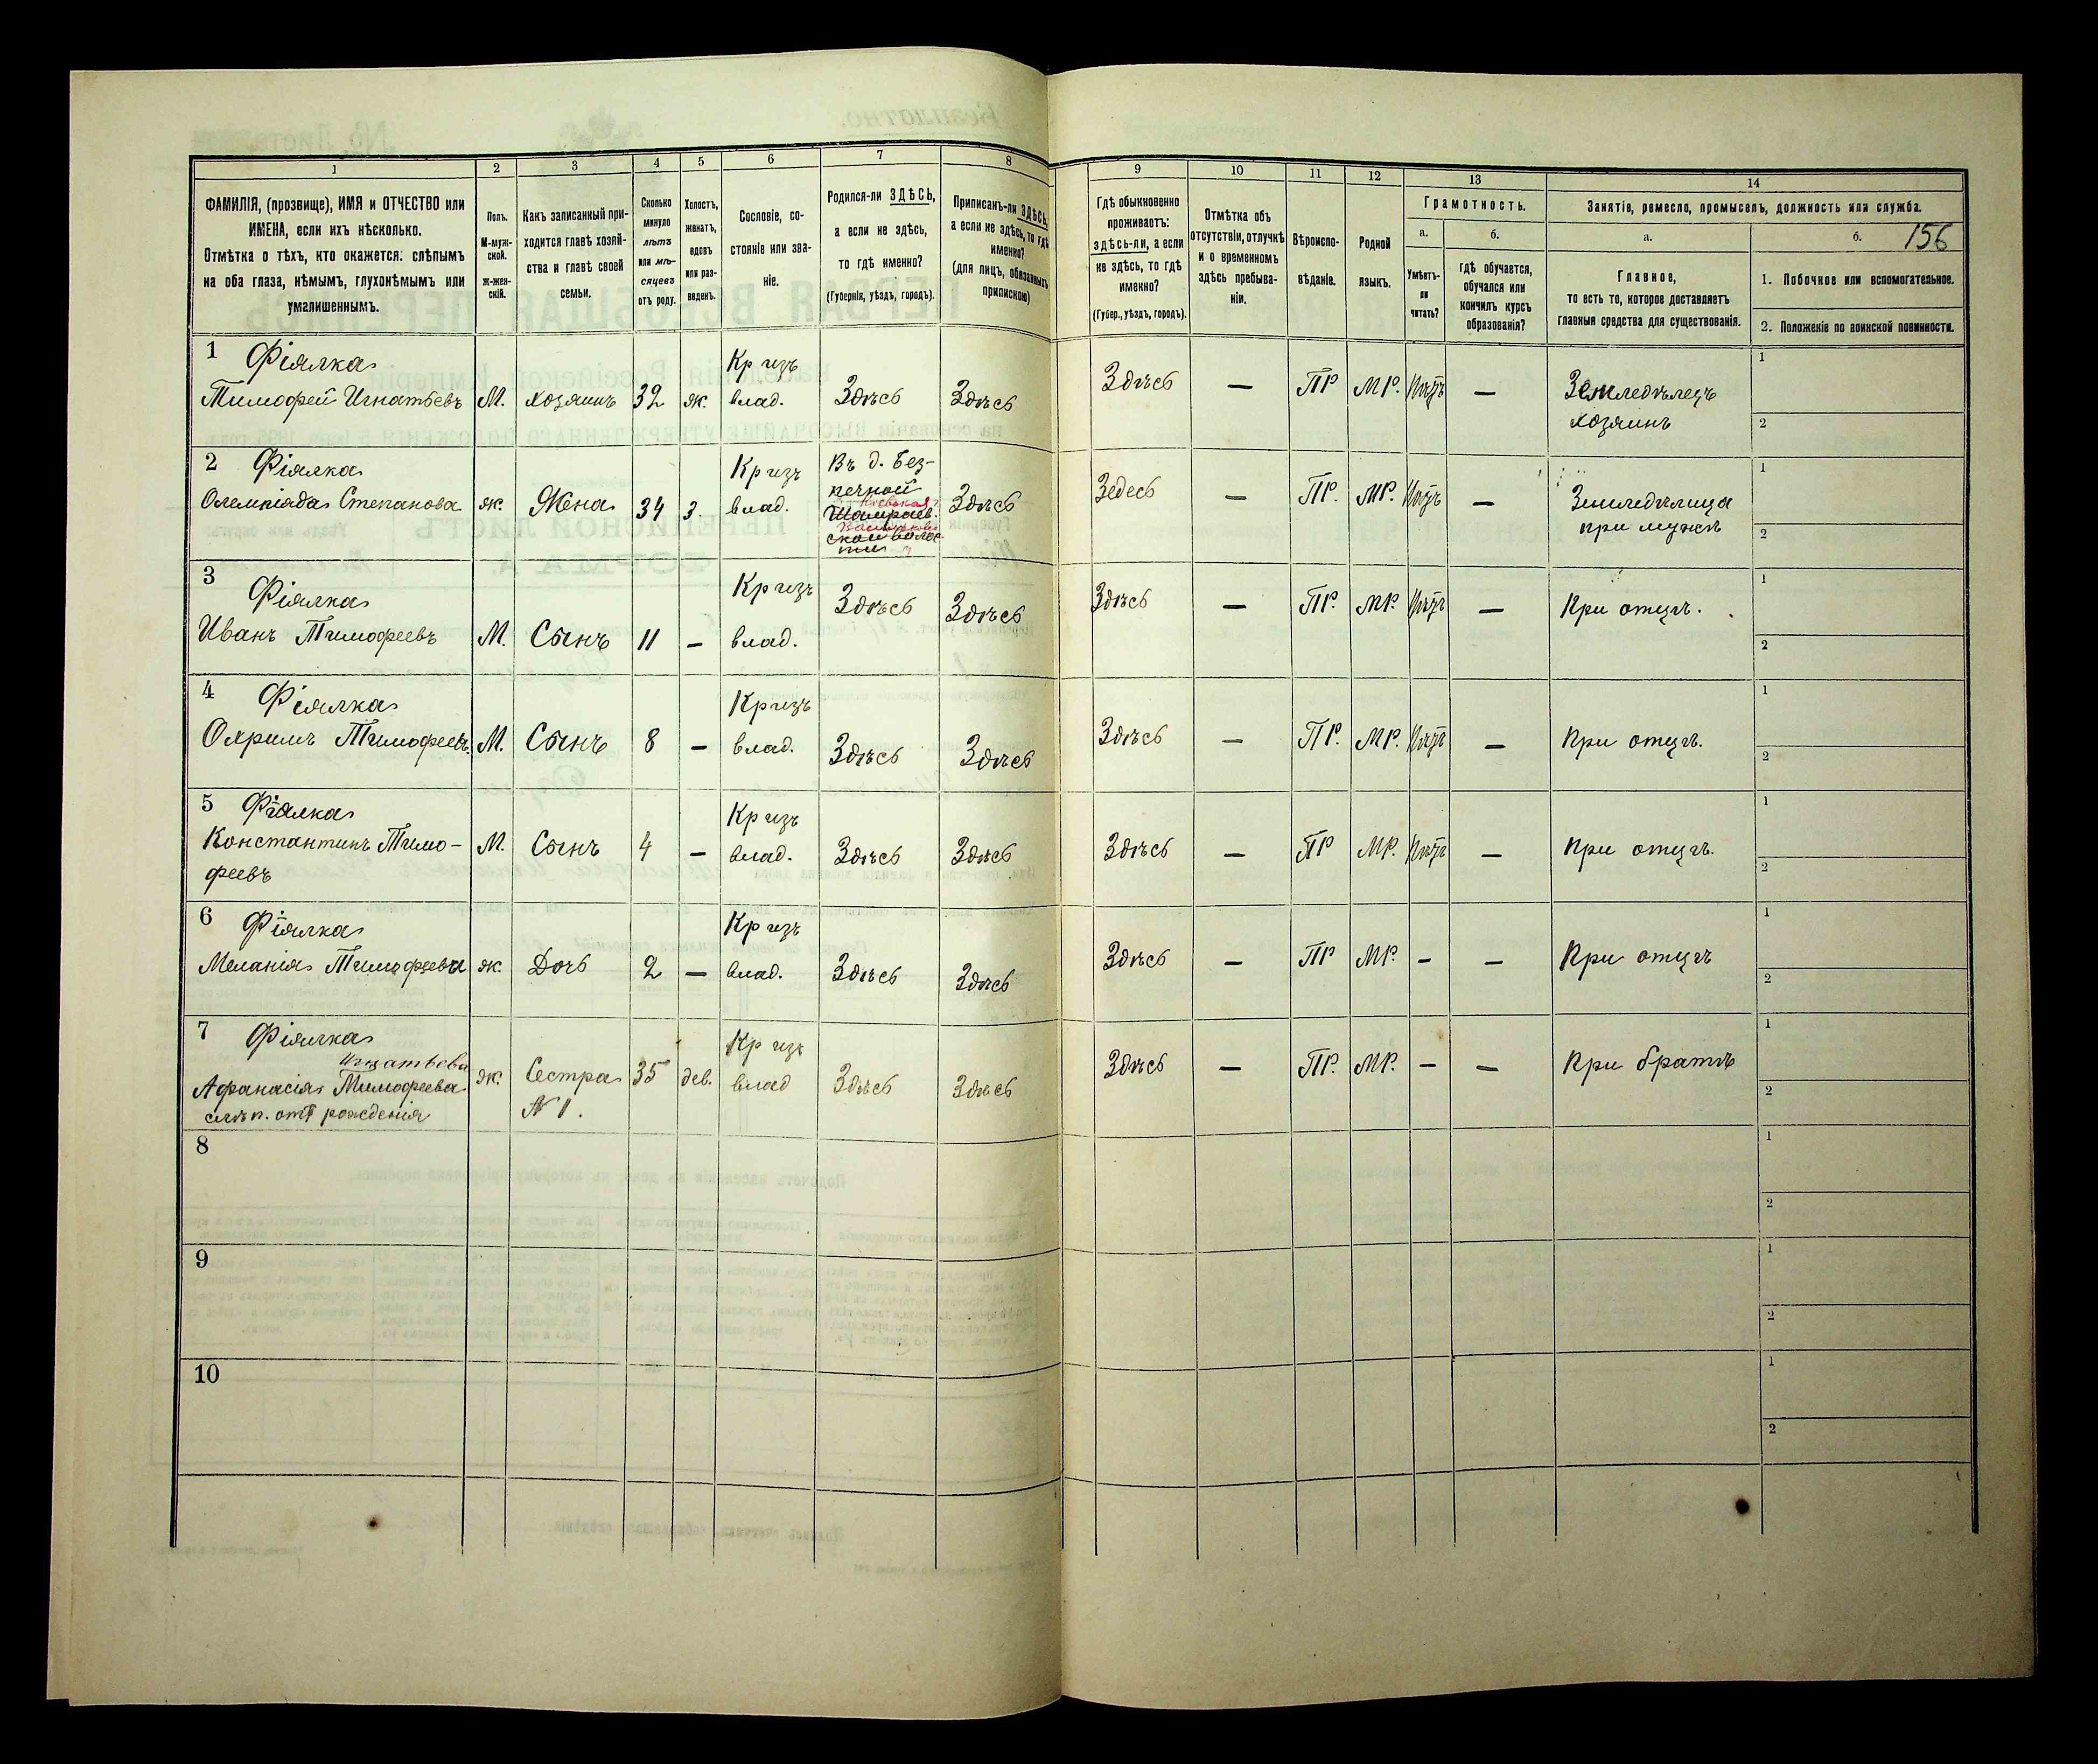 156
1
2
3
4
5
6
7
8
9
10
11
12
13
14
ФАМИЛІЯ, (прозвище), ИМЯ и ОТЧЕСТВО или
ИМЕНА, если ихъ нѣсколько.
Отмѣтка о тѣхъ, кто окажется: слѣпымъ
на оба глаза, нѣмымъ, глухонѣмымъ или
умалишеннымъ.
Полъ.
М-муж-
ской.
ж-жен-
скій.
Какъ записанный при-
ходится главѣ хозяй-
ства и главѣ своей
семьи.
Сколько
минуло
лѣтъ
или мѣ-
сяцевъ
отъ роду.
Холостъ,
женатъ,
вдовъ
или раз-
веденъ.
Сословіе, со-
стояніе или зва-
ніе.
Родился-ли ЗДѢСЬ,
а если не здѣсь,
то гдѣ именно?
(Губернія, уѣздъ, городъ).
Приписанъ-ли ЗДѢСЬ,
а если не здѣсь, то гдѣ
именно?
(для лицъ, обязанныхъ
припискою)
Гдѣ обыкновенно
проживаетъ:
здѣсь-ли, а если
не здѣсь, то гдѣ
именно?
(Губер., уѣздъ, городъ).
Отмѣтка объ
отсутствіи, отлучкѣ
и о временномъ
здѣсь пребыва-
ніи.
Вѣроиспо-
вѣданіе.
Родной
языкъ.
Грамотность.
а.
б.
Умѣетъ-
ли
читать?
гдѣ обучается,
обучался или
кончилъ курсъ
образованія?
Занятіе, ремесло, промыселъ, должность или служба.
а.
б.
Главное,
то есть то, которое доставляетъ
главныя средства для существованія.
1. Побочное или вспомогательное.
2. Положеніе по воинской повинности.
1 Фіялка
Тимофей Игнатьевъ М. хозяинъ 32 ж. Кр изъ влад. Здѣсь Здѣсь Здѣсь — ПР МР. — Земледѣлецъ
хозяинъ
1
2
2 Фіялка
Олемпіяда Степанова ж. Жена 34 з. Кр изъ влад. Въ д. Без-
печной
Шамраев-
ской волос
ти
Здѣсь Зедесь — ПР. МР. — Земледѣлица
при мужѣ
1
2
3 Фіялка
Иванъ Тимофеевъ М. Сынъ 11 — Кр изъ влад. Здѣсь Здѣсь Здѣсь — ПР. МР. — При отцѣ.
1
2
4 Фіялка
Охримъ Тимофеевъ М. Сынъ 8 — Кр изъ влад. Здѣсь Здѣсь Здѣсь — ПР. МР. — При отцѣ.
1
2
5 Фіялка
Константинъ Тимо-
феевъ М. Сынъ 4 — Кр изъ влад. Здѣсь Здѣсь Здѣсь — ПР МР. — При отцѣ.
1
2
6 Фіялка
Меланія Тимофеева ж. Дочь 2 — Кр изъ влад. Здѣсь Здѣсь Здѣсь — ПР МР. — — При отцѣ
1
2
7 Фіялка
Игнатьева
Афанасія Тимофеева ж. Сестра 35 дев. Кр изъ влад Здѣсь Здѣсь Здѣсь — ПР. МР. — — При братѣ
слѣп. отъ рожденія № 1.
1
2
8
1
2
9
1
2
10
1
2